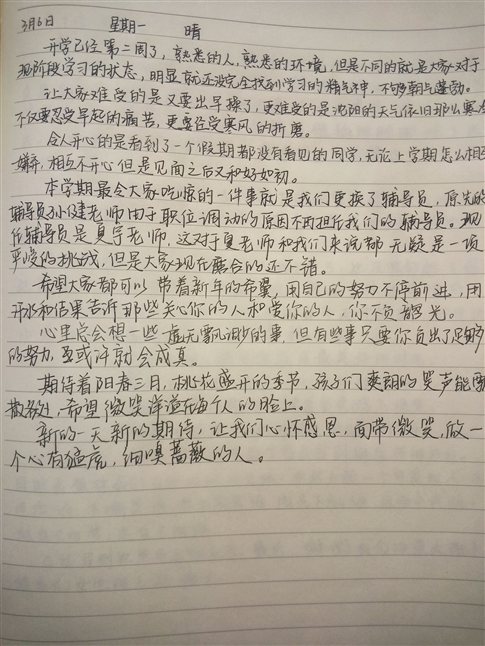 3月6日 星期一 晴
开学已经第二周了，熟悉的人，熟悉的环境，但是不同的就是大家对于
现阶段学习的状态，明显就还没完全找到学习的精气神，不够朝气蓬勃。
让大家难受的是又要出早操了，更难受的是沈阳的天气依旧那么寒冷
不仅要忍受早起的痛苦，更要经受寒风的折磨。
令人开心的是看到了一个假期都没有看见的同学，无论上学期怎么相互
嫌弃，相互不开心但是见面之后又和好如初。
本学期最令大家吃惊的一件事就是我们更换了辅导员，原先的
辅导员孙健老师由于职位调动的原因不再担任我们的辅导员。现
任辅导员是夏宇老师，这对于夏老师和我们来说都无疑是一项
严峻的挑战，但是大家现在磨合的还不错。
希望大家都可以带着新年的希冀，用自己的努力不停前进，用
汗水和结果告诉那些关心你的人和爱你的人，你不负韶光。
心里总会想一些虚无飘渺的事，但有些事只要你负出了足够
的努力，或许就会成真。
期待着阳春三月，桃花盛开的季节，孩子们爽朗的笑声能
散多少，希望微笑洋溢在每个人的脸上。
新的一天新的期待，让我们心怀感恩，面带微笑，做一
个心有猛虎，细嗅蔷薇的人。